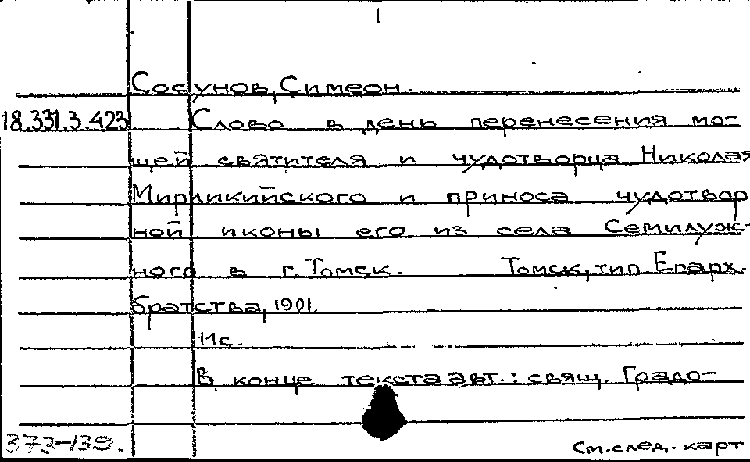 1
Сосунов, Симеон.
18.331.3.423 Слово в день перенесения мо-
щей святителя и чудотворца Николая
Мирликийского и приноса чудотвор
ной иконы его из села Семилуж-
ного в г. Томск. Томск, тип. Епарх.
братства, 1901.
11с.
В конце текста авт.: свящ. Градо-
373-139.
См. след. карт